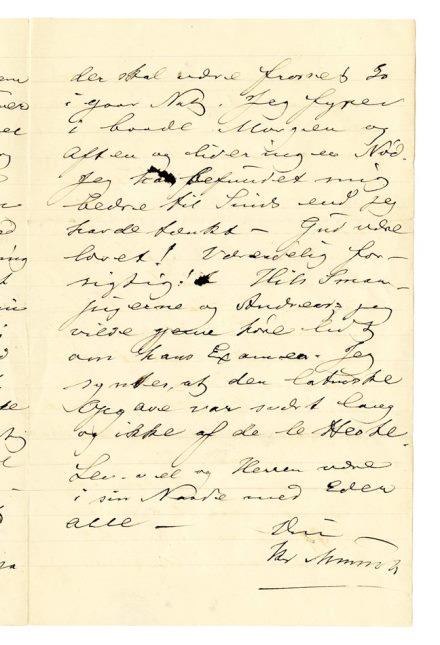 der skal være frosset
i gaar Nat. Jeg fyrer
i baade Morgen og
Aften og lider ingen Nød.
Jeg har befundet mig
bedre til Sinds end jeg
havde tænkt — Gud være
lovet! Værendelig for-
sigtig! Hils Smaa-
pigerne og Andreas, jeg
vilde gjerne høre lidt
om hans Examen. Jeg
syntes, at den latinske
Opgave var svært lang
og ikke af de letteste.
Lev vel og Herren være
i sin Naade med Eder
alle —
Din
Munch